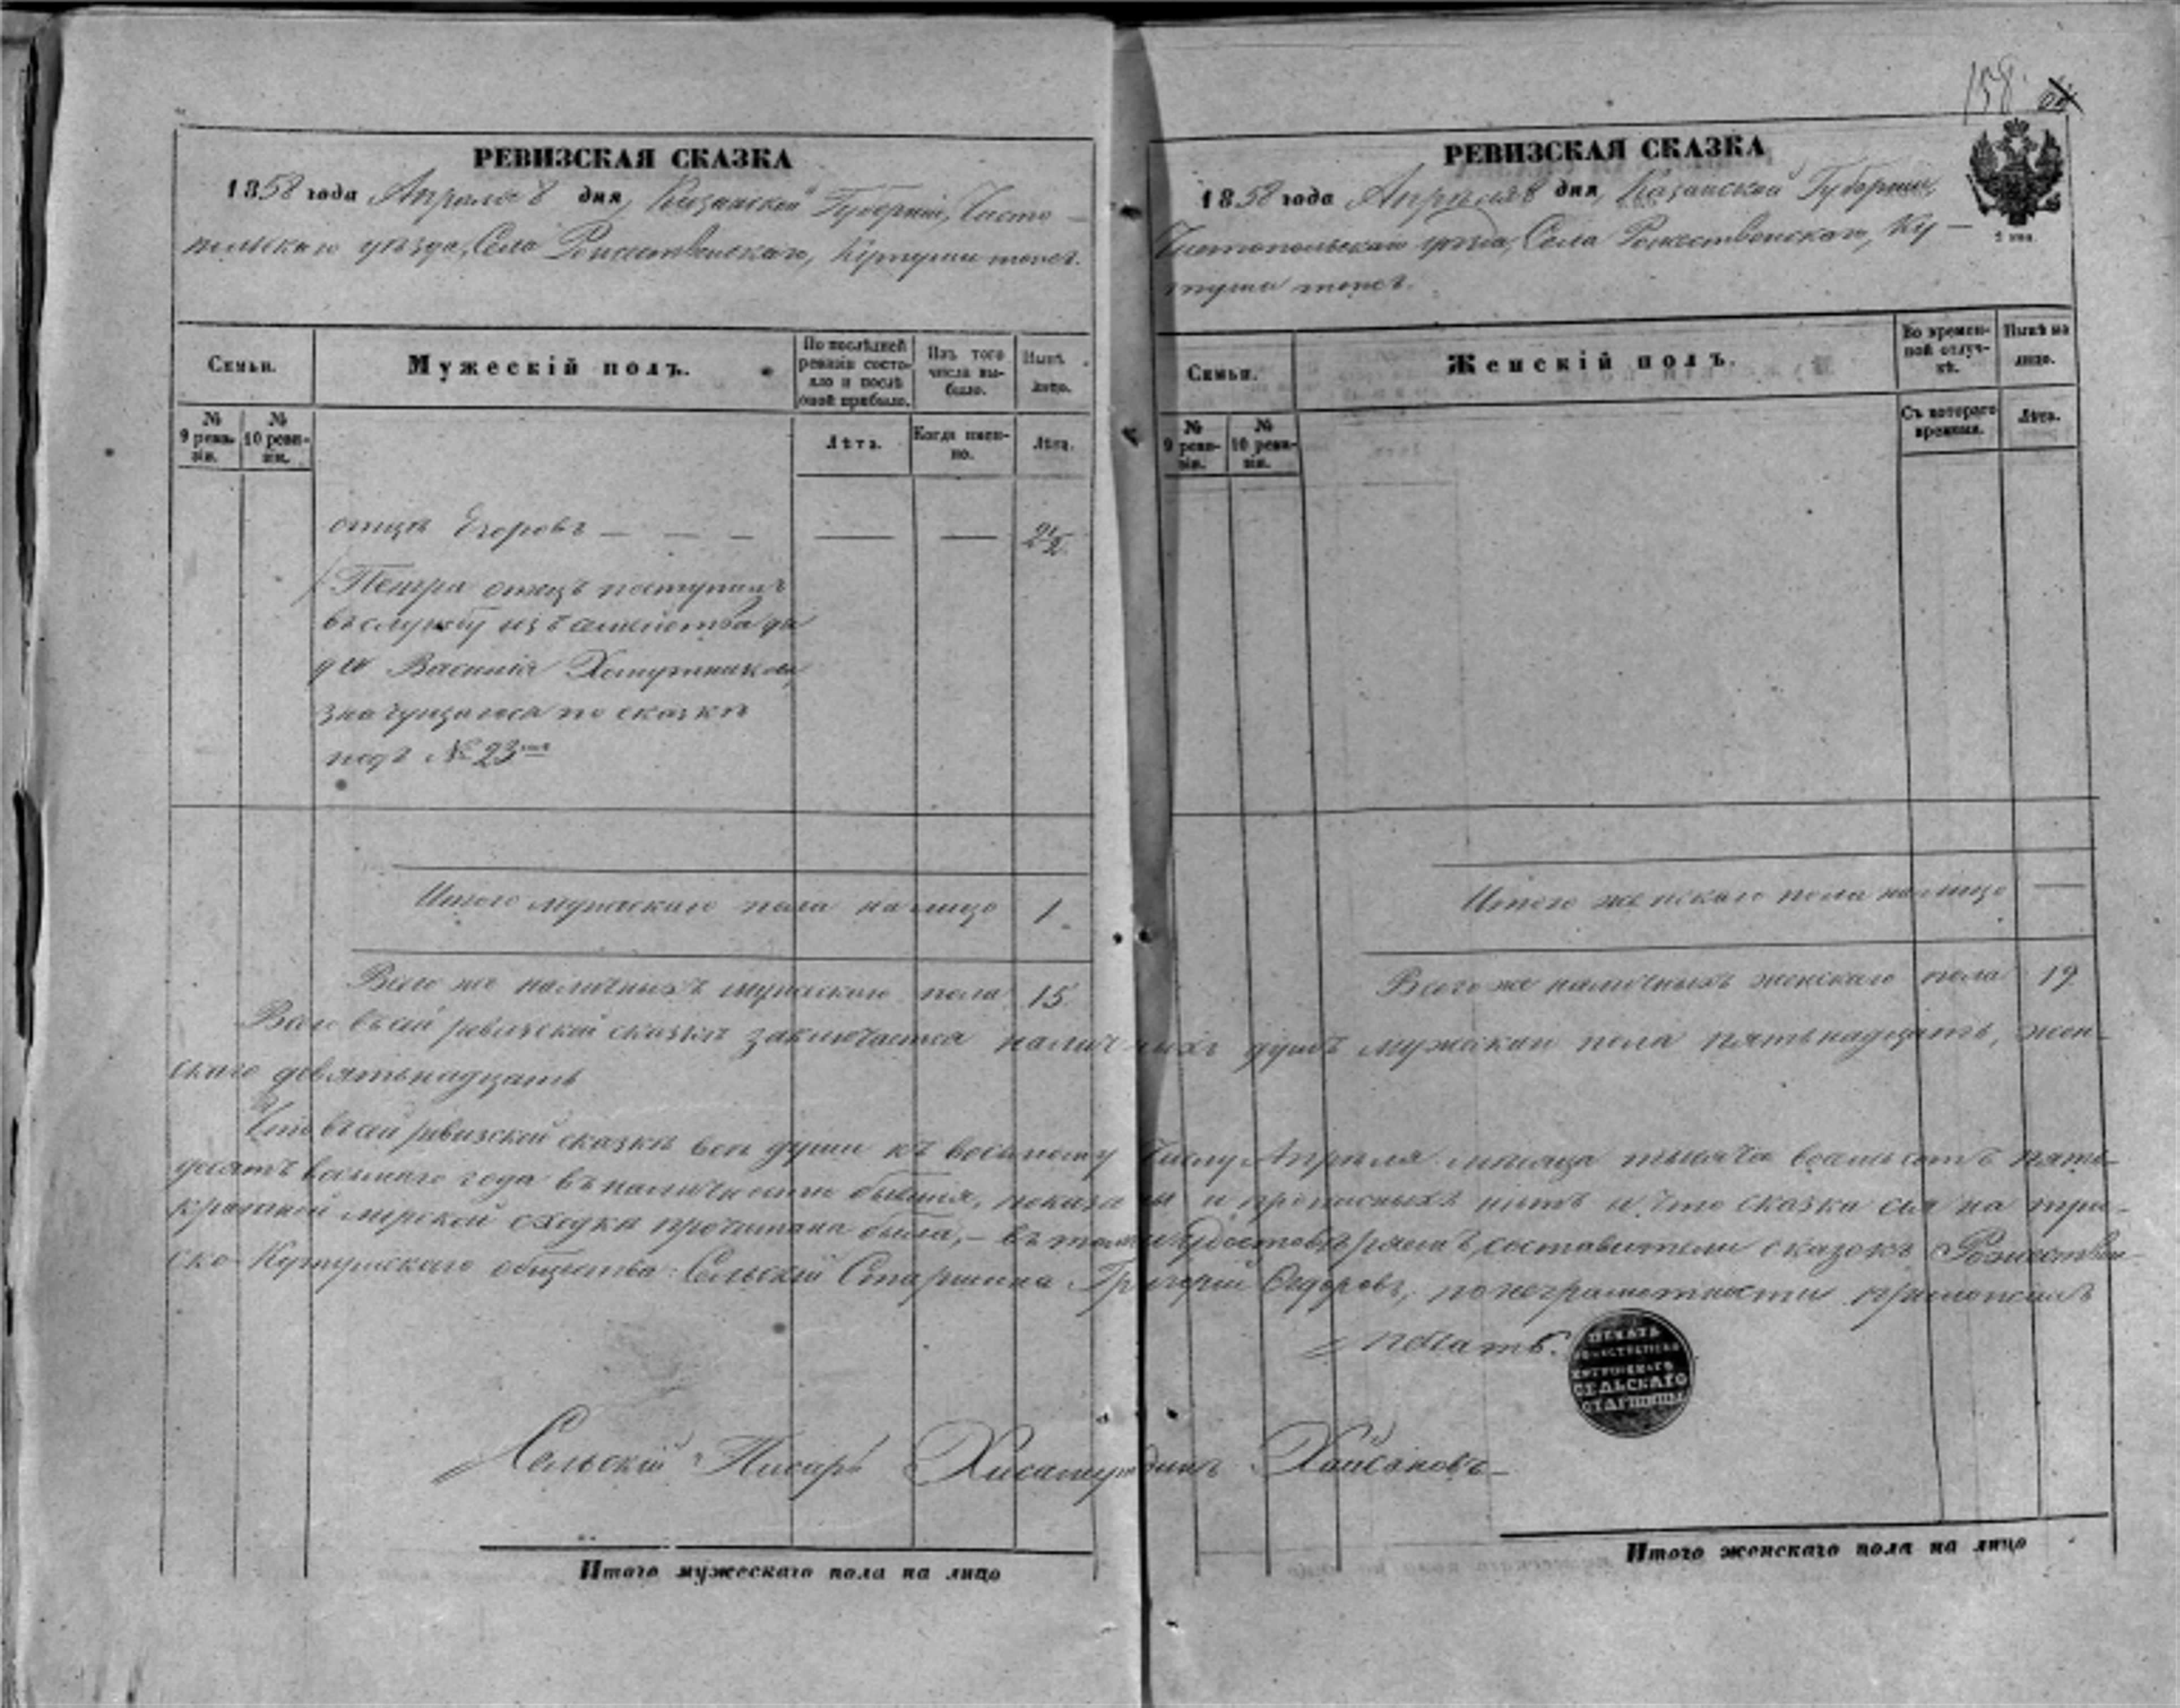 158
РЕВИЗСКАЯ СКАЗКА
1858 года Апреля 8 дня, Казанской Губерніи, Чисто-
польскаго уѣзда, Села Рожественскаго, Кутуши тожъ.
Семьи.
Мужескій полъ.
По послѣдней ревизіи состояло и послѣ оной прибыло.
Изъ того числа выбыло.
Нынѣ на лицо.
№ 9 ревизіи.
№ 10 ревизіи.
Лѣта.
Когда именно.
Лѣта.
отцѣ Егоровъ — — —
Петра отецъ поступилъ
въ службу изъ семейства дя
ди Василія Хомутникова,
значущагося по сказкѣ
подъ № 23мъ
Итого мужескаго пола на лицо 1
Всего же наличныхъ мужескаго пола 15
РЕВИЗСКАЯ СКАЗКА
1858 года Апреля 8 дня, Казанской Губерніи,
Чистопольскаго уѣзда, Села Рожественскаго, Ку-
туши тожъ.
Семьи.
Женскій полъ.
Во временной отлучкѣ.
Нынѣ на лицо.
№ 9 ревизіи.
№ 10 ревизіи.
Съ котораго времени.
Лѣта.
Итого женскаго пола на лицо —
Всего же наличныхъ женскаго пола 19
Всего въ сей ревизской сказкѣ заключается наличныхъ душъ мужскаго пола пятьнадцать, жен-
скаго девятьнадцать
Что въ сей ревизской сказкѣ всѣ души къ восьмому числу Апреля месяца тысяча восемьсотъ пять-
десятъ восьмаго года въ наличности бывшія, показаны и прописныхъ нѣтъ и что сказка сія на три-
кратной мірской сходкѣ прочитана была, — въ томъ удостовѣряемъ, составители сказокъ Рожествен-
ско-Кутушскаго общества: Сельскій Старшина Григорій Федоровъ, по неграмотности приложилъ
печать.
ПЕЧАТЬ
СЕЛЬСКАГО
СТАРШИНЫ
Сельскій Писарь Хисамутдинъ Хайсановъ
Итого мужескаго пола на лицо
Итого женскаго пола на лицо